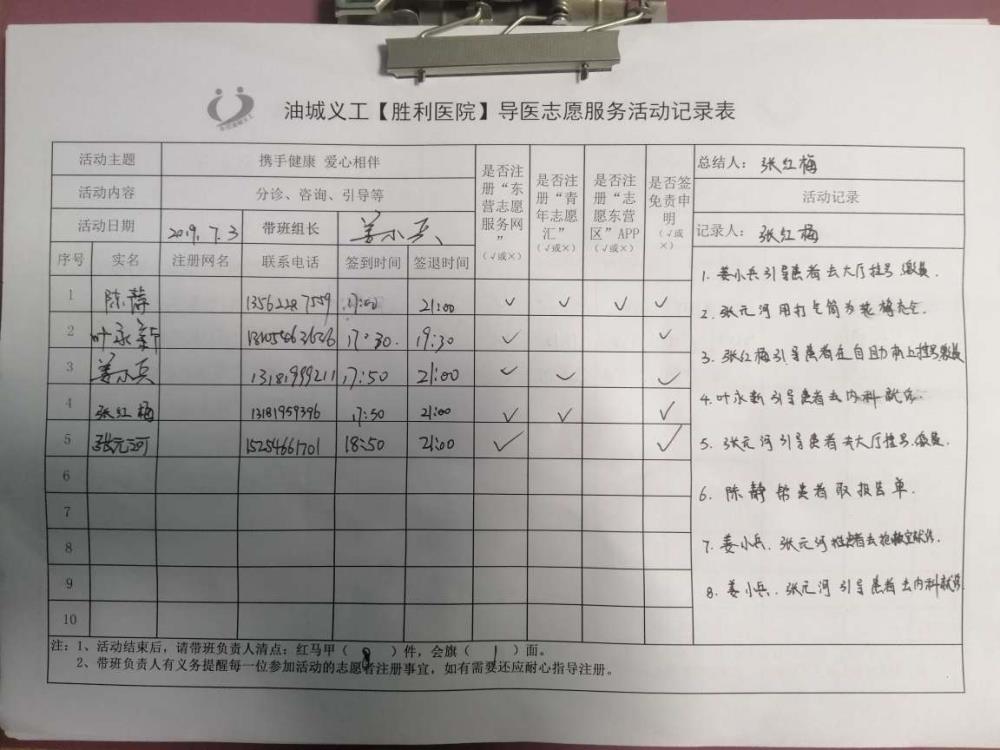 油城义工【胜利医院】导医志愿服务活动记录表
活动主题 携手健康 爱心相伴
活动内容 分诊、咨询、引导等
活动日期 2019.7.3 带班组长 姜小兵
是否注册“东营志愿服务网”（√或×）
是否注册“青年志愿汇”（√或×）
是否注册“志愿东营区”APP（√或×）
是否签免责申明（√或×）
总结人：张红梅
活动记录
记录人：张红梅
序号 实名 注册网名 联系电话 签到时间 签退时间
1 陈静 13562287559 17:00 21:00 ✓ ✓ ✓ ✓
2 叶永新 17:30. 19:30 ✓ ✓
3 姜小兵 13181999211 17:50 21:00 ✓ ✓ ✓
4 张红梅 13181959396 17:50 21:00 ✓ ✓ ✓
5 张元河 15254661701 18:50 21:00 ✓ ✓
6
7
8
9
10
1. 姜小兵引导患者去大厅挂号缴费.
2. 张元河用打气筒为轮椅充气.
3. 张红梅引导患者在自助机上挂号缴费
4. 叶永新引导患者去内科就诊.
5. 张元河引导患者去大厅挂号.缴费.
6. 陈静帮患者取报告单.
7. 姜小兵.张元河推患者去抢救室就诊.
8. 姜小兵.张元河引导患者去内科就诊.
注：1、活动结束后，请带班负责人清点：红马甲（8）件，会旗（1）面。
2、带班负责人有义务提醒每一位参加活动的志愿者注册事宜，如有需要还应耐心指导注册。